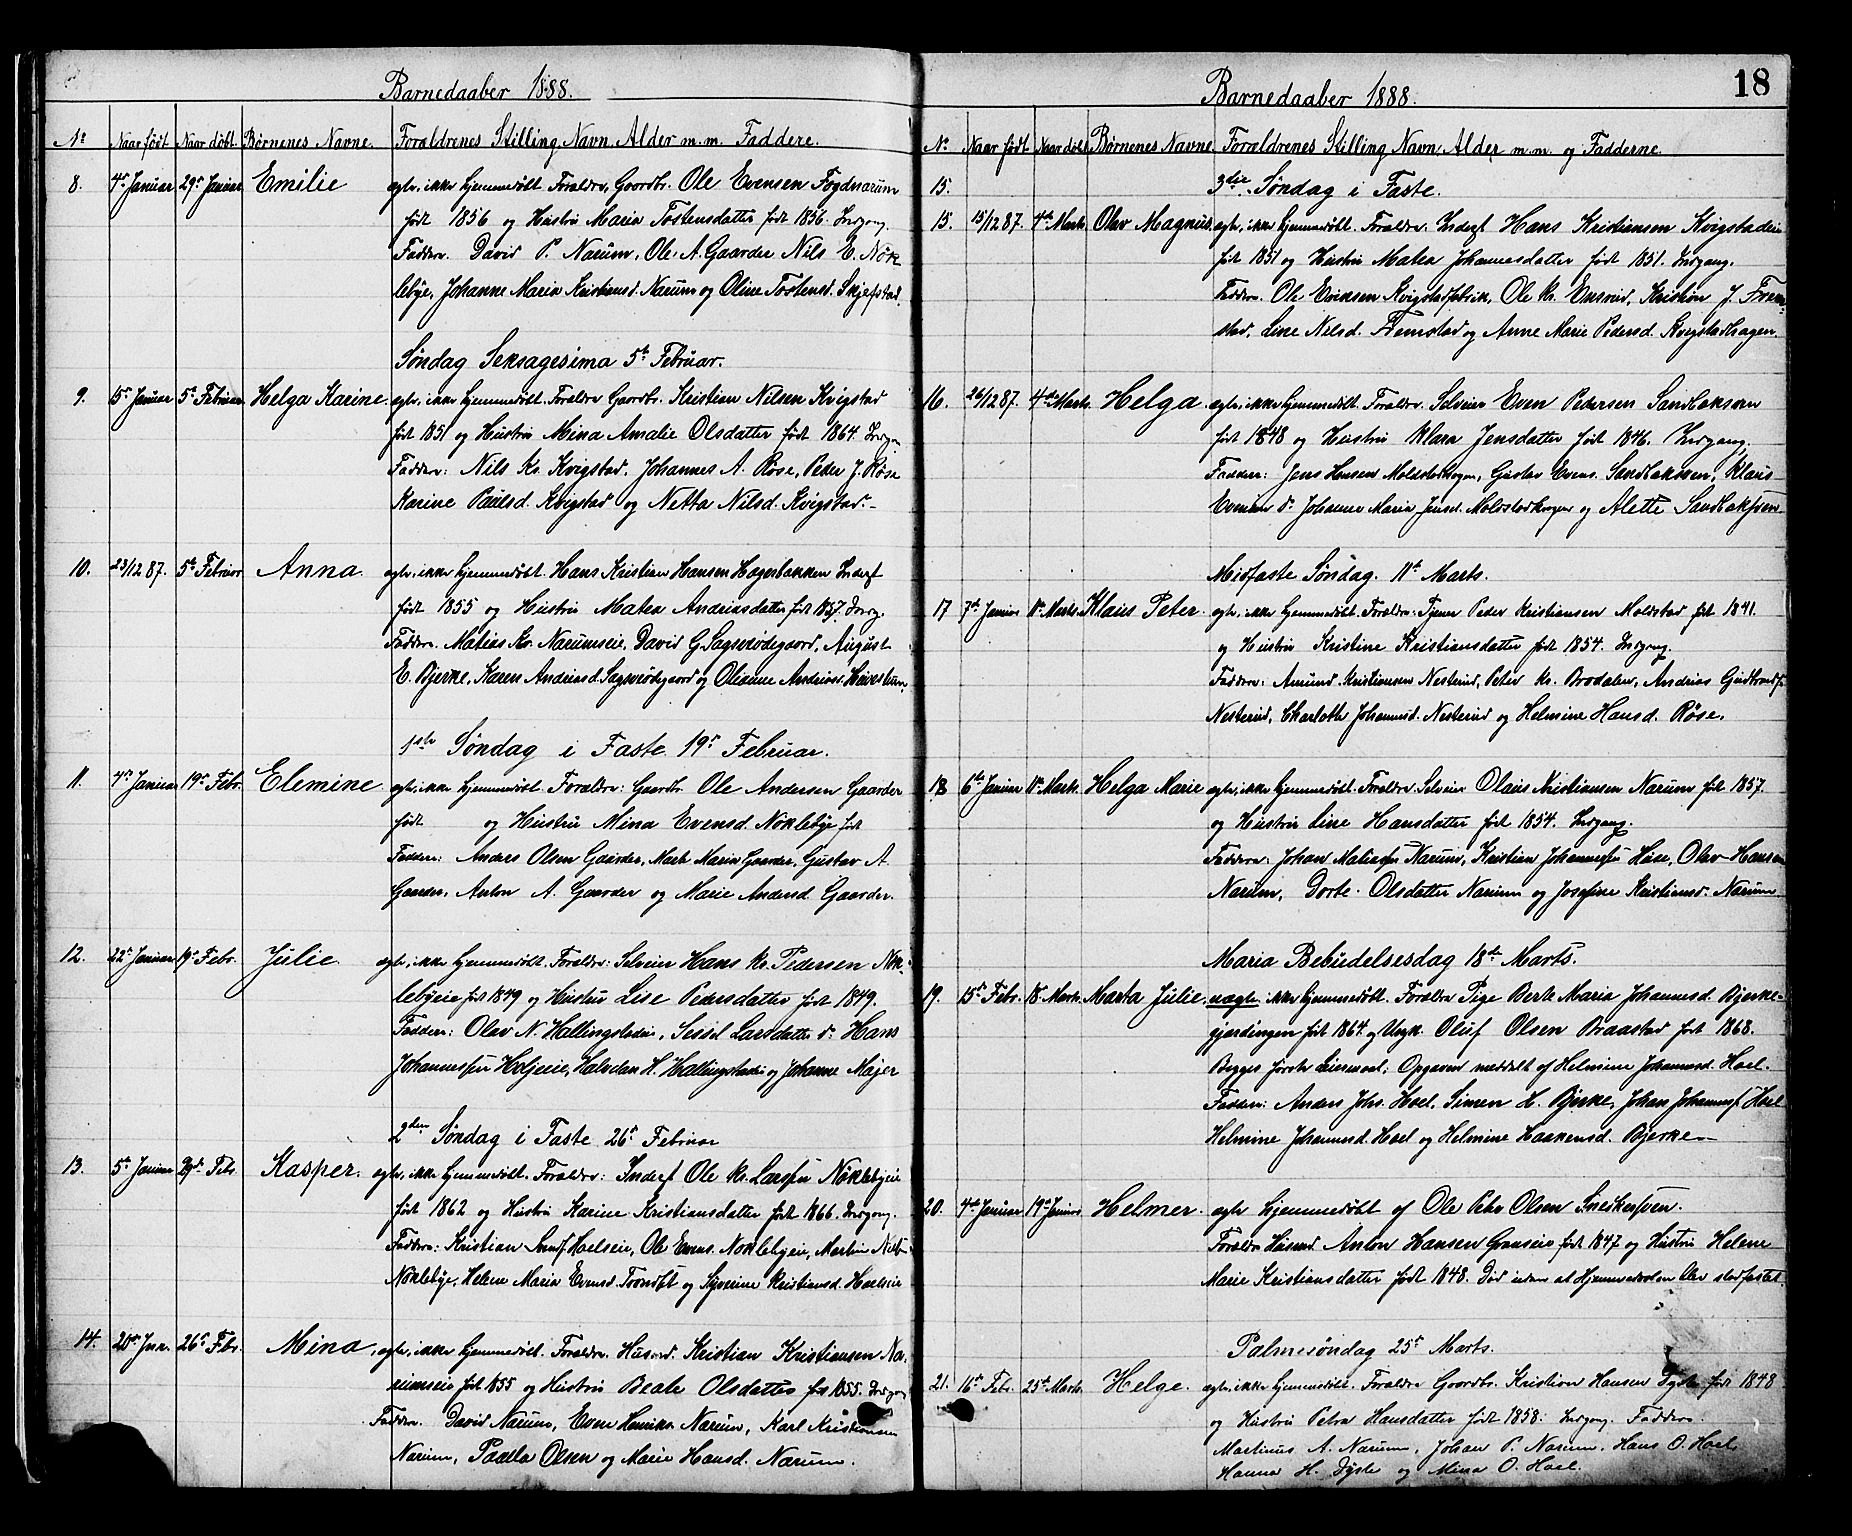 Barnedaaber 1888.
No Naar født Naar døbt Børnenes Navne. Forældrenes Stilling Navn Alder m.m. Faddere.
8. 4de Januar 29de Januar Emilie ægte, ikke hjemmedøbt. Forældre, Gaardbr. Ole Evensen Fogdnarum
født 1856 og Hustru Maria Tostensdatter født 1856. Indgang.
Faddere. David P. Narum, Ole A. Gaarder Nils E. Nøk
lebye, Johanne Maria Kristiansd. Narum og Oline Tostensd. Skjefstad.
Søndag Seksagesima 5te Februar.
9. 15de Januar 5te Februar Helga Karine ægte, ikke hjemmedøbt. Forældre Gaardbr. Kristian Nilsen Kvigstad
født 1851 og Hustru Mina Amalie Olsdatter født 1864. Indgan
Faddere: Nils Kr. Kvigstad, Johannes A. Røse, Peder J. Røse
Karine Paulsd. Kvigstad og Netta Nilsd. Kvigstad.
10. 23/12 87. 5te Februar Anna. ægte, ikke hjemmedøbt. Hans Kristian Hansen Hagerbakken Inderst
født 1855 og Hustru Matea Andriasdatter født 1857. Indg.
Faddere. Matias Kr. Narumseie, David G. Sagvødegaard, August
E. Bjerke, Karen Andriasd. Sagvødegaard og Oleane Andriasd.
1ste Søndag i Faste 19de Februar.
11. 4de Januar 19de Febr. Elemine ægte, ikke hjemmedøbt. Forældre: Gaardbr. Ole Andersen Gaarder
født og Hustru Mina Evensd. Nøklebye født
Faddere: Andres Olsen Gaarder, Marte Maria Gaarder, Gustav A.
Gaarder, Anton A. Gaarder og Marie Andersd. Gaarder.
12. 22de Januar 19de Febr. Julie ægte, ikke hjemmedøbt. Forældre: Selveier Hans Kr. Pedersen Nøk-
lebyeie født 1849 og Hustru Lise Pedersdatter født 1849.
Faddere: Olav N. Hallingstadeie, Sessel Larsdatter do. Hans
Johannessen Holjeie, Halvdan H. Hallingstadeie og Johanne Majer
2den Søndag i Faste 26de Februar
13. 5te Januar Febr. Kasper. ægte, ikke hjemmedøbt. Forældre: Inderst Ole Kr. Larssen Nøklebyeie
født 1862 og Hustru Karine Kristiansdatter født 1866. Indgang.
Faddere: Kristian Hoelseie, Ole Evens. Nøklebyeie, Martin
Nøklebye, Helene Maria Evensd. og Syverine Kristiansd. Hoelseie
14. 20de Jan. 26de Febr. Mina, ægte, ikke hjemmedøbt. Forældre. Husmd. Kristian Kristiansen Na-
rumseie født 1855 og Hustru Beate Olsdatter født 1855. Indgang
Faddere. David Narum, Even Henriks. Narum, Karl Kristiansen
Narum, Paalla Olsen og Marie Hansd. Narum.
18
Barnedaaber 1888.
No Naar født Naar døbt Børnenes Navne Forældrenes Stilling Navn, Alder m.m. og Fadderne.
15. 3die Søndag i Faste.
15. 15/12 87. 4de Marts. Olav Magnus ægte, ikke hjemmedøbt. Forældre: Inderst Hans Kristiansen Kvigstadeie
født 1851 og Hustru Matea Johannesdatter født 1851. Indgang.
Faddere. Ole Eriksen Kvigstadfabrik, Ole Kr. Kristian J. Frem-
stad, Line Nilsd. Fremstad og Anne Marie Pedersd. Kvigstadhagen.
16. 26/12 87. 4de Marts. Helga. ægte, ikke hjemmedøbt. Forældre. Selveier Even Pedersen Sandbaksven
født 1848 og Hustru Klara Jensdatter født 1846. Indgang.
Faddere: Jens Hansen Molstadhagen, Gustav Evens. Sandbaksven, Klaus
Evensen do. Johanne Marie Jensd. Molstadhagen og Alette Sandbaksven.
Midfaste Søndag. 11te Marts.
17 7de Januar 11te Marts. Klaus Peter. ægte, ikke hjemmedøbt. Forældre: Tjener Peder Kristiansen Molstad født 1841.
og Hustru Kristine Kristiansdatter født 1854. Indgang.
Faddere: Amund Kristiansen Nesterud, Peter Kr. Brodalen, Andrias Gudbrands.
Nesterud, Charlotte Johannesd. Nesterud og Helmine Hansd. Røse.
18 6te Januar 11te Marts. Helga Marie ægte, ikke hjemmedøbt. Forældre. Selveier Olaus Kristiansen Narum født 1857.
og Hustru Line Hansdatter født 1854. Indgang.
Faddere: Johan Matiassen Narum, Kristian Johannessen Huse, Olav Hansen
Narum, Dorte Olsdatter Narum og Josefine Kristiansd. Narum
Maria Bebudelsesdag 18de Marts.
19. 15de Febr. 18de Marts Marta Julie, uægte. ikke hjemmedøbt. Forældre Pige Berte Maria Johannesd. Bjerke-
gjærdingen født 1864 og Ungk. Oluf Olsen Braastad født 1868.
Begges første Leiermaal. Opgaven meddelt af Helmine Johannesd. Hoel.
Faddere: Anders Johs. Hoel, Simen H. Bjerke, Johan Johanness. Hoel
Helmine Johannesd. Hoel og Helmine Haakensd. Bjerke
20. 4de Januar 19de Januar Helmer. ægte hjemmedøbt af Ole Peter Olsen Snekersven.
Forældre Husmd. Anton Hansen Granseie født 1847 og Hustru Helene
Marie Kristiansdatter født 1848. Død inden at Hjemmedaaben blev stadfæstet.
Palmesøndag 25de Marts.
21. 16de Febr. 25de Marts. Helge. ægte, ikke hjemmedøbt. Forældre Gaardbr. Kristian Hansen Dyste født 1848
og Hustru Petra Hansdatter født 1858. Indgang. Faddere.
Martinus A. Narum, Johan P. Narum, Hans O. Hoel,
Hanna H. Dyste og Mina O. Hoel.